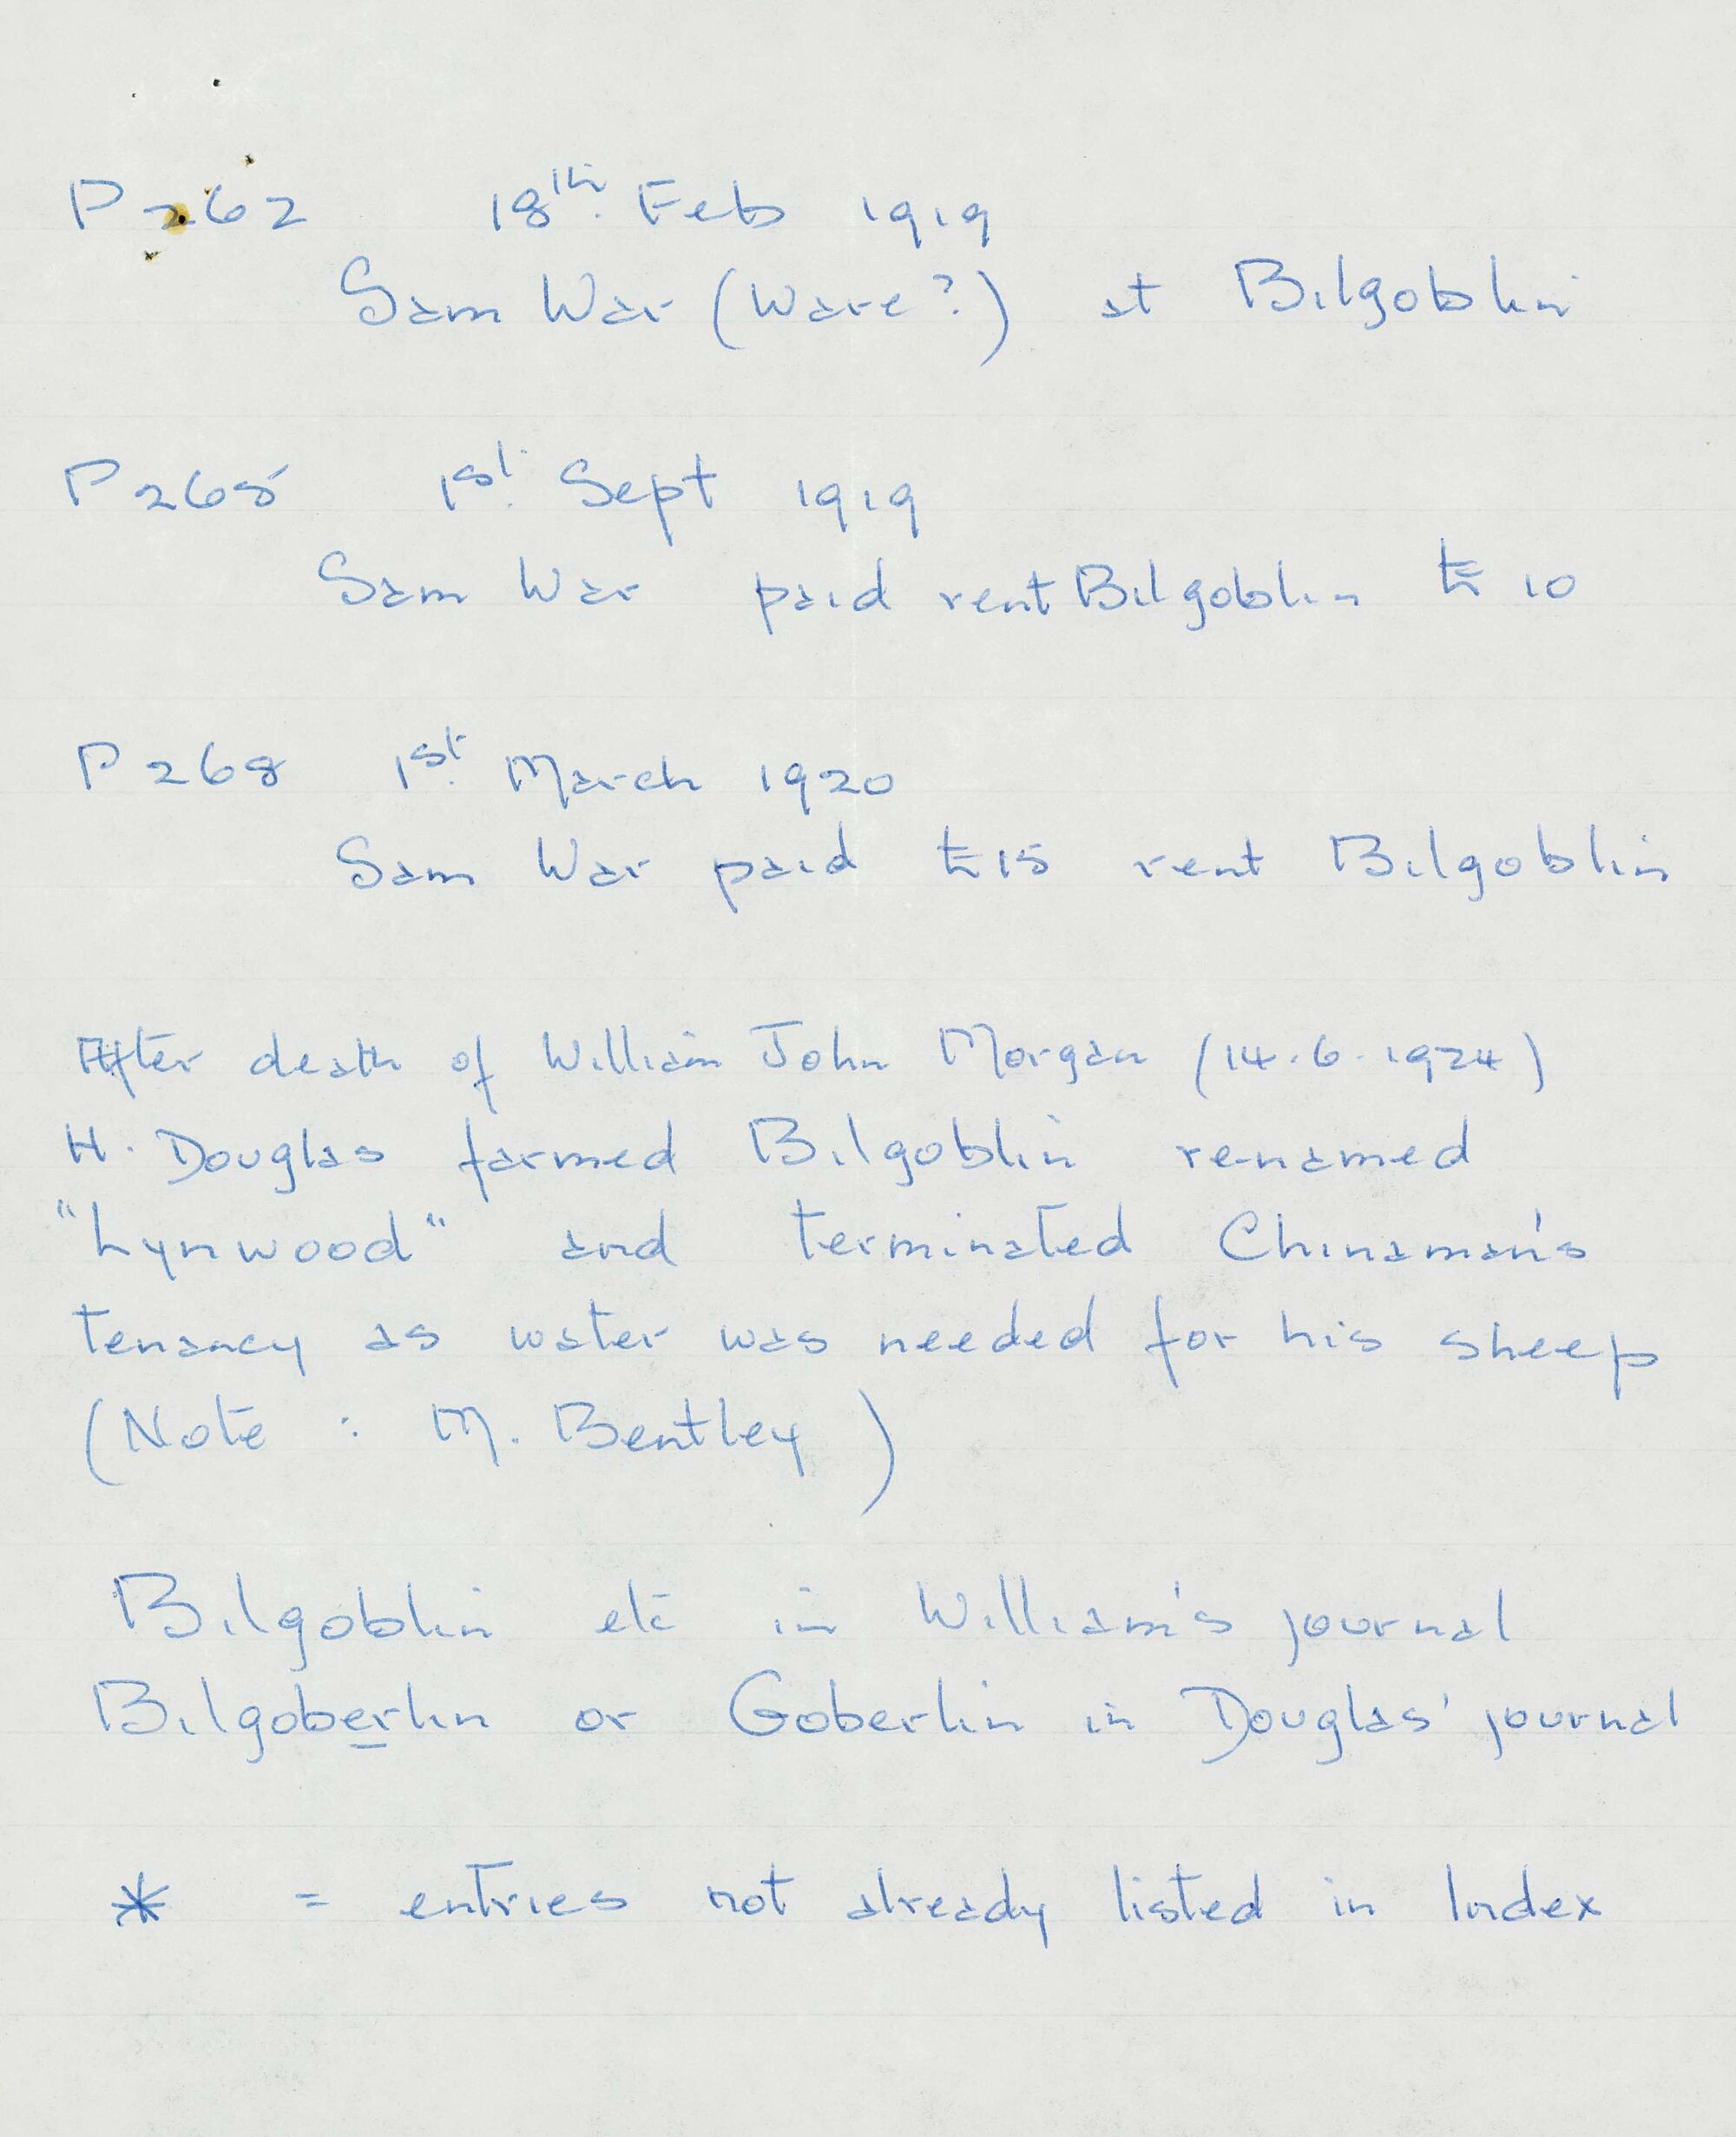 P 262 18th. Feb 1919
Sam War (Ware?) at Bilgoblin
P 265 1st. Sept 1919
Sam War paid rent Bilgoblin £10
P 268 1st. March 1920
Sam War paid £15 rent Bilgoblin
After death of William John Morgan (14.6.1924)
H. Douglas farmed Bilgoblin renamed
"Lynwood" and terminated Chinaman's
tenancy as water was needed for his sheep
(Note : M. Bentley)
Bilgoblin etc in William's journal
Bilgoberlin or Goberlin in Douglas' journal
* = entries not already listed in Index